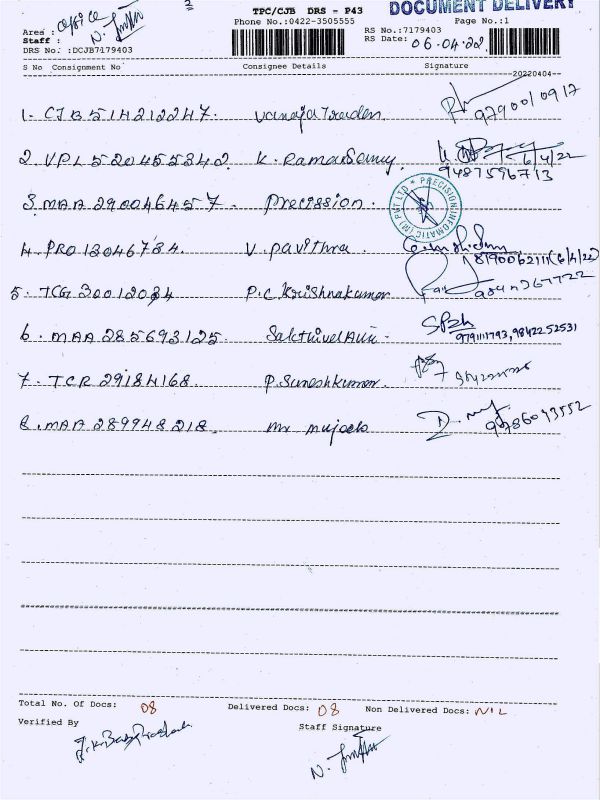 TPC/CJB DRS - P43
DOCUMENT DELIVERY
Area : office
Phone No.:0422-3505555
Page No.:1
Staff :
RS No.:7179403
DRS No.: DCJB7179403
RS Date: 06.04.22
S No Consignment No Consignee Details Signature
20220404
1. CJB514212247. Vanaja Traders
9790010917
2. VPL520455342. K. Ramasamy. 6/4/22
9487596713
3. MAA290046457. Precission.
PRECISION INFOMATIC (M) PVT LTD *
4. PRO13046784. V. Pavithra.
8190062111 (6/4/22)
5. TCG300120 P.C. Krishnakumar
6. MAA285693125 Sakthivel
9791111793, 9842252531
7. TCR29184168. P. Sureshkumar.
8. MAA289948218. Mr
9786093552
Total No. Of Docs: 08 Delivered Docs: 08 Non Delivered Docs: NIL
Verified By Staff Signature